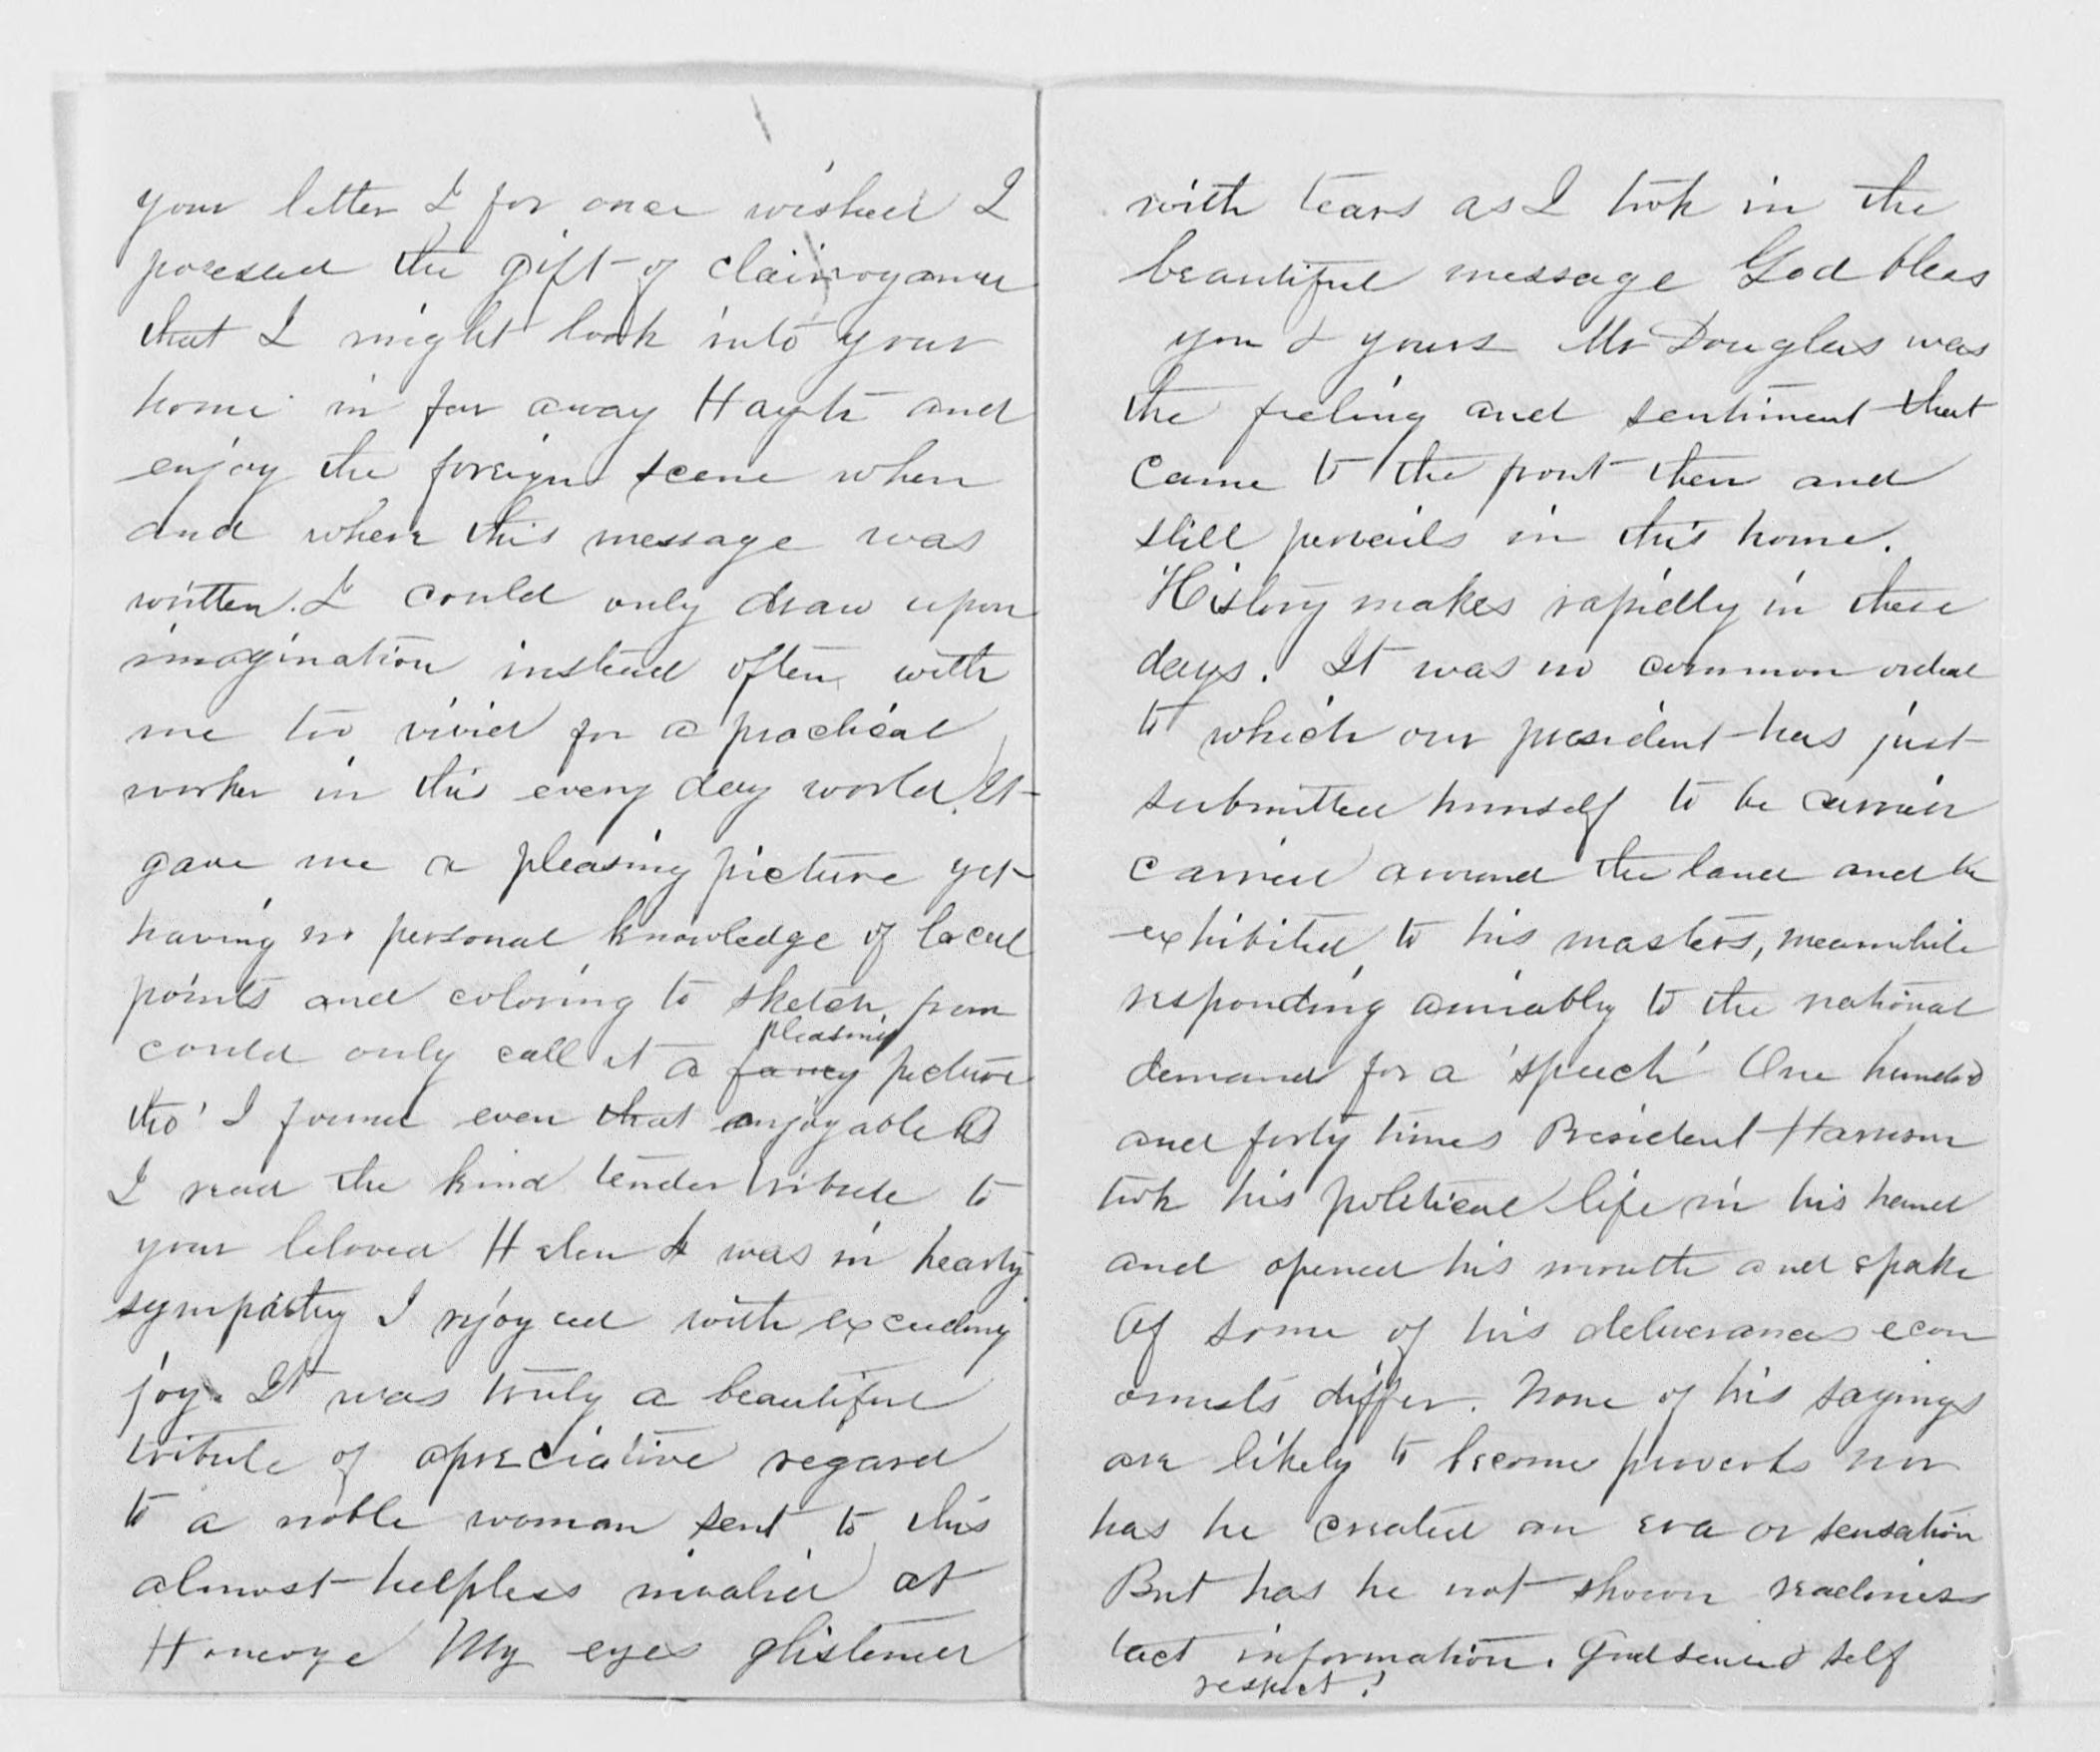 your letter I for once wished I
posessed the gift of clairvoyance
that I might look into your
home in far away Hayti and
enjoy the foreign scene when
and where this message was
written. I could only draw upon
imagination instead often with
me too vivid for a practical
worker in this every day world. It
gave me a pleasing picture yet
having no personal knowledge of local
points and coloring to sketch from
could only call it a fancy pleasing picture
tho' I found even that enjoyable As
I read the kind tender tribute to
your beloved Helen I was in hearty
sympathy I rejoyced with exceeding
joy. It was truly a beautiful
tribute of apreciative regard
to a noble woman sent to this
almost helpless invalid at
Honeoye My eyes glistened
with tears as I took in the
beautiful message God bless
you & yours Mr Douglass was
the feeling and sentiment that
came to the front then and
still prevails in this home.
History makes rapidly in these
days. It was no common ordeal
to which our president has just
submitted himself to be
carried around the land and be
exhibited to his masters, meanwhile
responding amiably to the national
demand for a 'speech' One hundred
and forty times President Harrison
took his political life in his hand
and opened his mouth and spake
Of some of his deliverances econ
omists differ. None of his sayings
are likely to become proverbs nor
has he created an era or sensation
But has he not shown readiness
tact information. Good sense & self
respect?